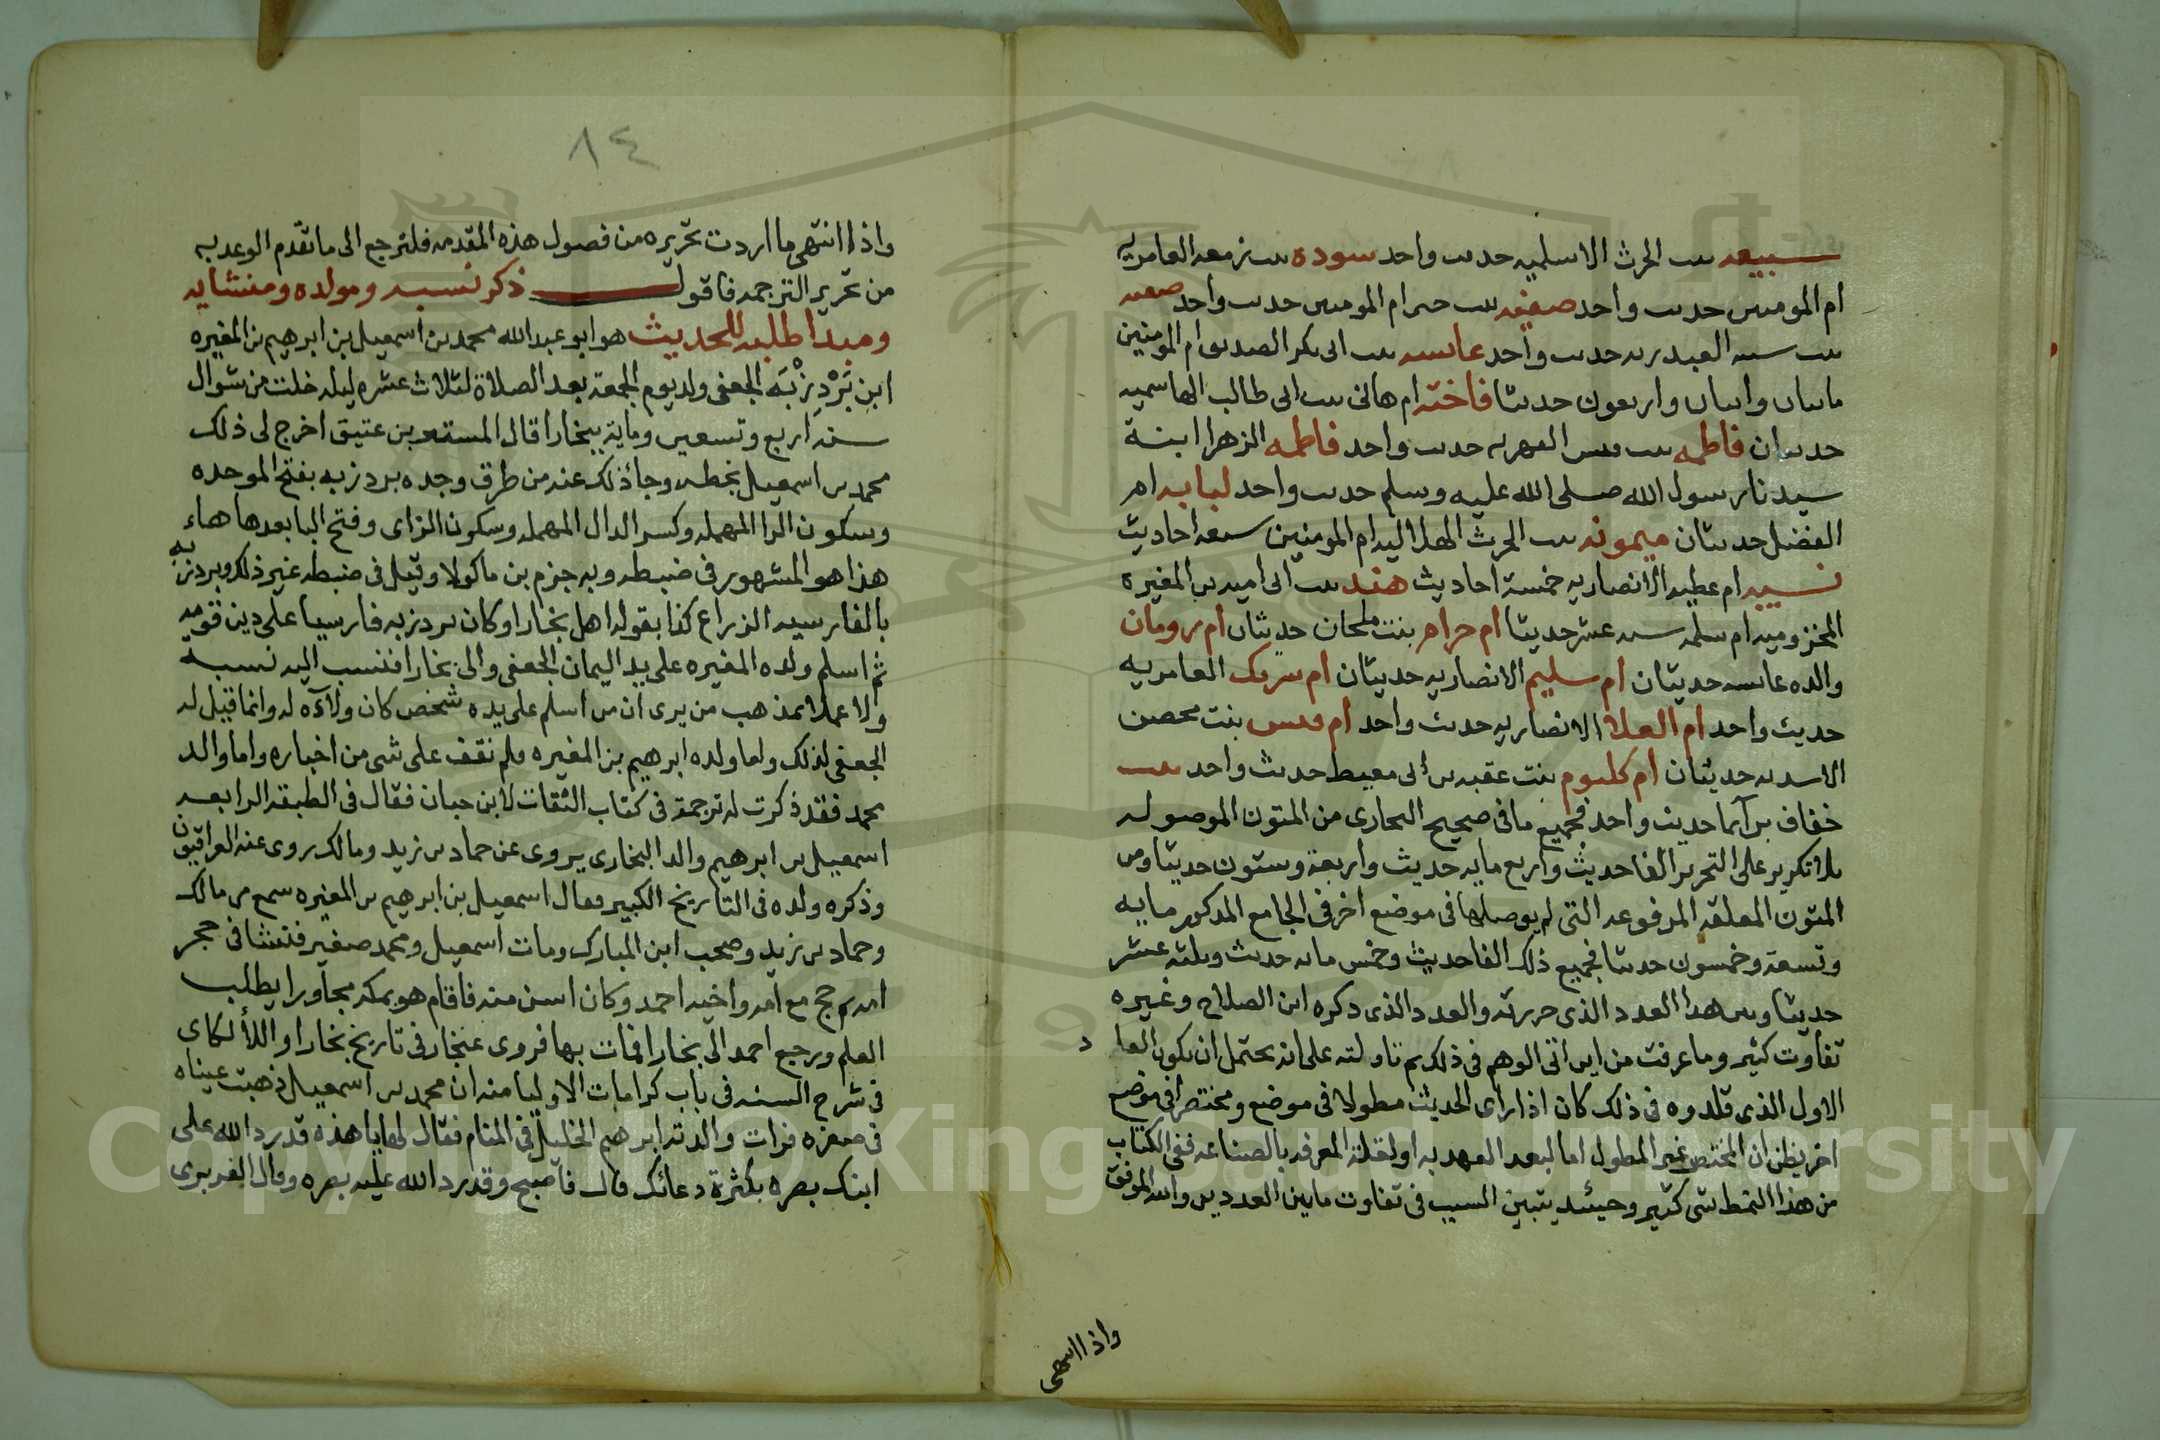 سبيعه بنت الحرث الاسلميه حديث واحد سوده بنت زمعه العامريه
ام المومنين حديث واحد صفيه بنت حيى ام المومنين حديث واحد صفيه
بنت شيبه العبدريه حديث واحد عايشه بنت ابى بكر الصديق ام المومنين
مايتان واثنان واربعون حديثا فاخته ام هانى بنت ابى طالب الهاشميه
حديثان فاطمه بنت قيس الفهريه حديث واحد فاطمه الزهرا ابنة
سيدنا رسول الله صلى الله عليه وسلم حديث واحد لبابه ام
الفضل حديثان ميمونه بنت الحرث الهلاليه ام المومنين سبعه احاديث
نسيبه ام عطيه الانصاريه خمسة احاديث هند بنت ابى اميه بن المغيره
المخزوميه ام سلمه سته عشر حديثا ام حرام بنت ملحان حديثان ام رومان
والده عايشه حديثان ام سليم الانصاريه حديثان ام شريك العامريه
حديث واحد ام العلا الانصاريه حديث واحد ام قيس بنت محصن
الاسديه حديثان ام كلثوم بنت عقبه بن ابى معيط حديث واحد بنت
خفاف بن ايما حديث واحد فجميع ما فى صحيح البخارى من المتون الموصوله
بلا تكرير على التحرير الفا حديث واربع مايه حديث واربعة وستون حديثا ومن
المتون المعلقه المرفوعه التى لم يوصلها فى موضع اخر فى الجامع المذكور مايه
وتسعة وخمسون حديثا فجميع ذلك الفا حديث وخمس مايه حديث وثلثه عشر
حديثا وبين هدا العدد الذى حررته والعدد الذى ذكره ابن الصلاح وغيره
تفاوت كثير وما عرفت من اين اتى الوهم فى ذلك ثم تاولته على انه يحتمل ان يكون العاد
الاول الذى قلدوه فى ذلك كان اذا راى الحديث مطولا فى موضع ومختصرا فى موضع
اخر يظن ان المختصر غير المطول اما لبعد العهد به او لقلة المعرفه بالصناعه ففى الكتاب
من هذا النمط شى كثير وحينئد يتبين السبب فى تفاوت ما بين العددين والله الموفق
واذا انتهى
٨٤
واذا انتهى ما اردت تحريره من فصول هذه المقدمه فلنرجع الى ما تقدم الوعد به
من تحرير الترجمه فاقول ذكر نسبه ومولده ومنشايه
ومبدا طلبه للحديث هو ابو عبد الله محمد بن اسمعيل بن ابرهيم بن المغيره
ابن بَرْدِزْبَه الجعفى ولد يوم الجمعة بعد الصلاة لثلاث عشره ليله خلت من شوال
سنه اربع وتسعين وماية ببخارا قال المستنير بن عتيق اخرج لى ذلك
محمد بن اسمعيل بخطه وجا ذلك عنه من طرق وجده بردزبه بفتح الموحده
وسكون الرا المهمله وكسر الدال المهمله وسكون الزاى وفتح البا بعدها هاء
هذا هو المشهور فى ضبطه وبه جزم بن ماكولا وقيل فى ضبطه غير ذلك وبردزبه
بالفارسيه الزراع كذا يقوله اهل بخارا وكان بردزبه فارسيا على دين قومه
ثم اسلم ولده المغيره على يد اليمان الجعفى والى بخارا فنسب اليه نسبه
ولا عملا بمذهب من يرى ان من اسلم على يده شخص كان ولآؤه له وانما قيل له
الجعفى لذلك واما ولده ابرهيم بن المغيره فلم نقف على شى من اخباره واما والد
محمد فقد ذكرت له ترجمة فى كتاب الثقات لابن حبان فقال فى الطبقه الرابعه
اسمعيل بن ابرهيم والد البخارى يروى عن حماد بن زيد ومالك روى عنه العراقيون
وذكره ولده فى التاريخ الكبير فقال اسمعيل بن ابرهيم بن المغيره سمع من مالك
وحماد بن زيد وصحب ابن المبارك ومات اسمعيل ومحمد صغير فنشا فى حجر
امه ثم حج مع امه واخيه احمد وكان اسن منه فاقام هو بمكه مجاورا يطلب
العلم ورجع احمد الى بخارا فمات بها فروى غنجار فى تاريخ بخارا واللألكاى
فى شرح السنه فى باب كرامات الاوليا منه ان محمد بن اسمعيل ذهبت عيناه
فى صغره فرات والدته ابرهيم الخليل فى المنام فقال لها يا هذه قد رد الله على
ابنك بصره بكثرة دعائك قال فاصبح وقد رد الله عليه بصره وقال الفربرى
Copyright © King Saud University